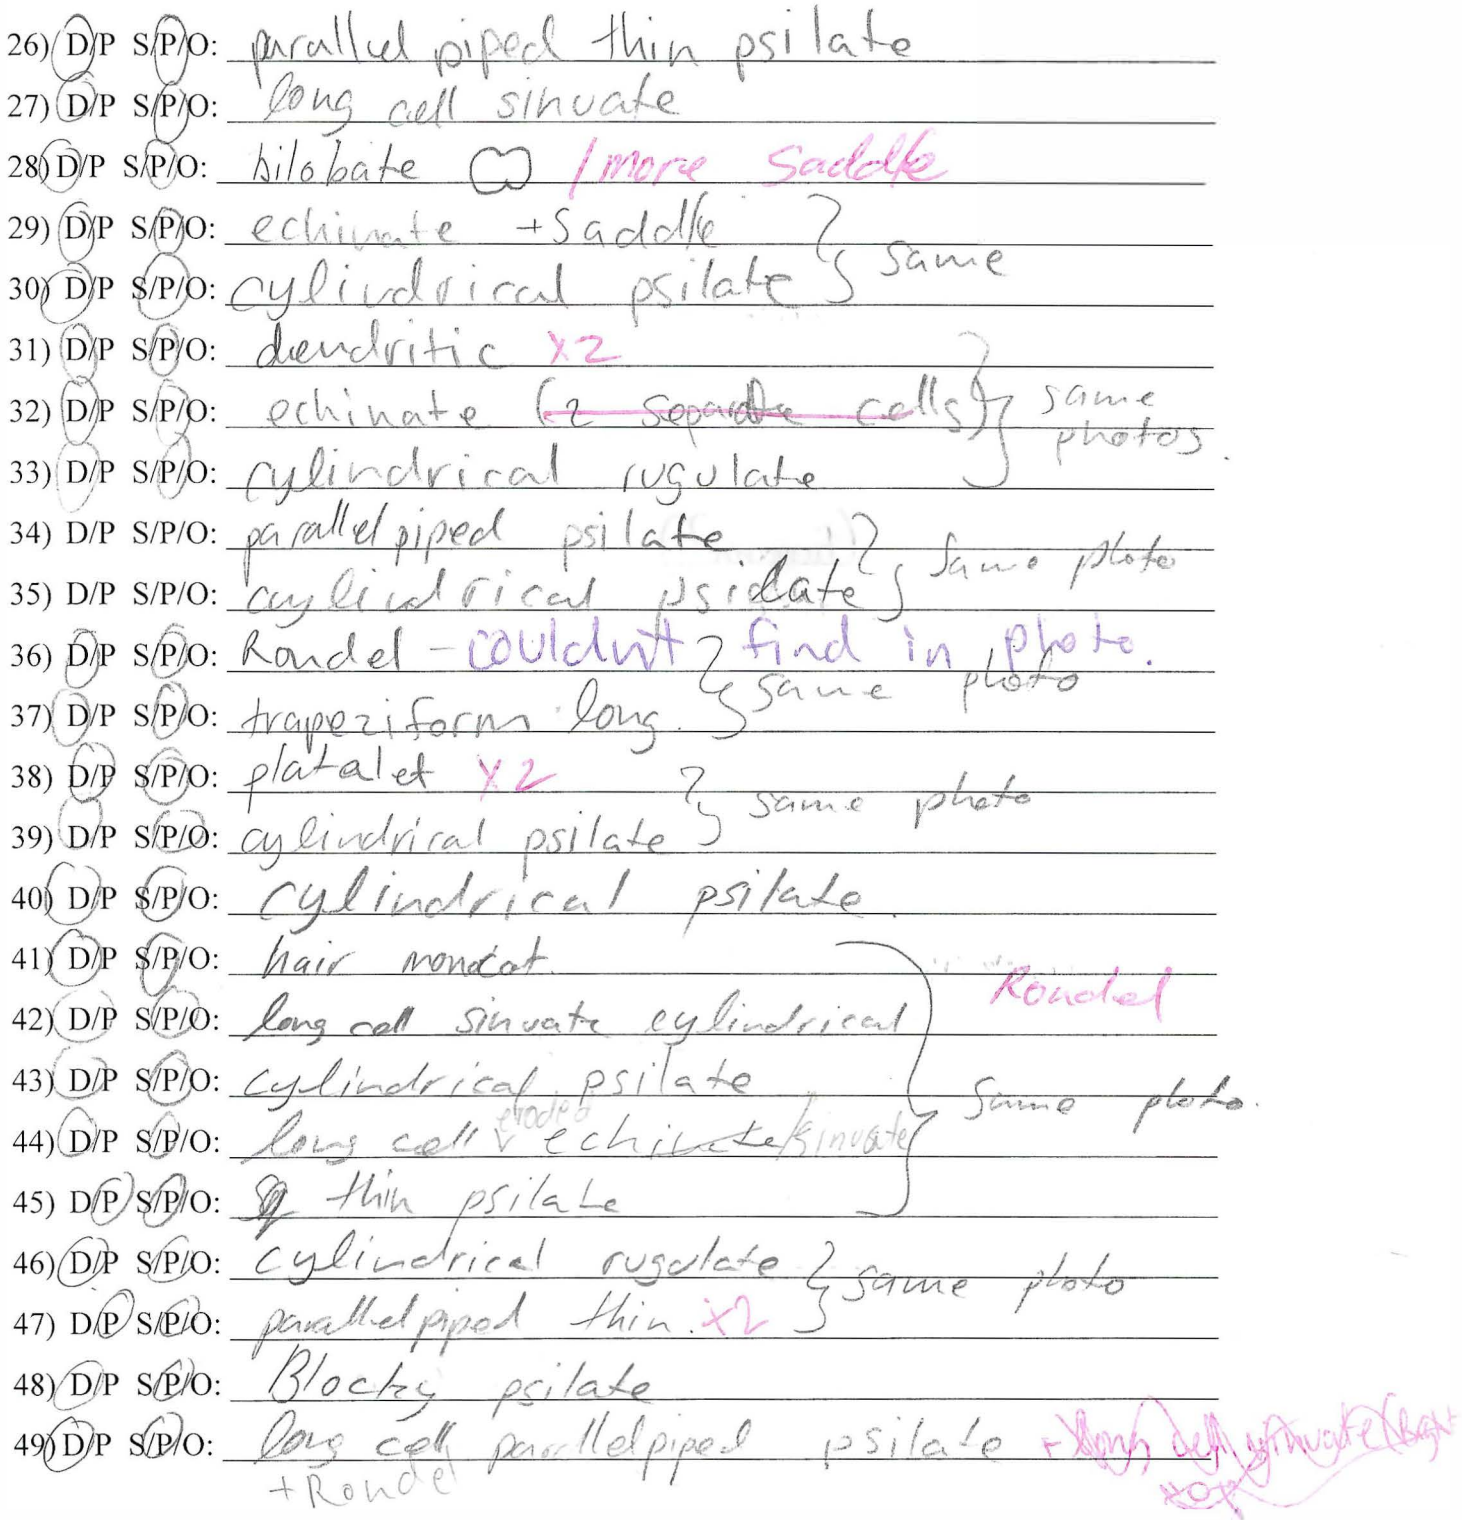 26) D/P S/P/O: parallel piped thin psilate
27) D/P S/P/O: long cell sinuate
28) D/P S/P/O: bilobate / more Saddle
29) D/P S/P/O: echinate + Saddle
same
30) D/P S/P/O: cylindrical psilate
31) D/P S/P/O: dendritic X2
32) D/P S/P/O: echinate (2 separate cells) same
photos.
33) D/P S/P/O: cylindrical rugulate
34) D/P S/P/O: parallelpiped psilate
same photo
35) D/P S/P/O: cylindrical psilate
36) D/P S/P/O: Rondel - couldn't find in photo.
same photo
37) D/P S/P/O: trapeziform long.
38) D/P S/P/O: platelet X2
same photo
39) D/P S/P/O: cylindrical psilate
40) D/P S/P/O: cylindrical psilate.
41) D/P S/P/O: hair monocot.
Rondel
42) D/P S/P/O: long cell sinuate cylindrical
43) D/P S/P/O: cylindrical psilate
same photo.
eroded
44) D/P S/P/O: long cell echinate/sinuate
45) D/P S/P/O: thin psilate
46) D/P S/P/O: cylindrical rugulate
same photo
47) D/P S/P/O: parallelpiped thin. X2
48) D/P S/P/O: Blocky psilate
49) D/P S/P/O: long cell parallelpiped psilate + long cell sinuate
+ Rondel